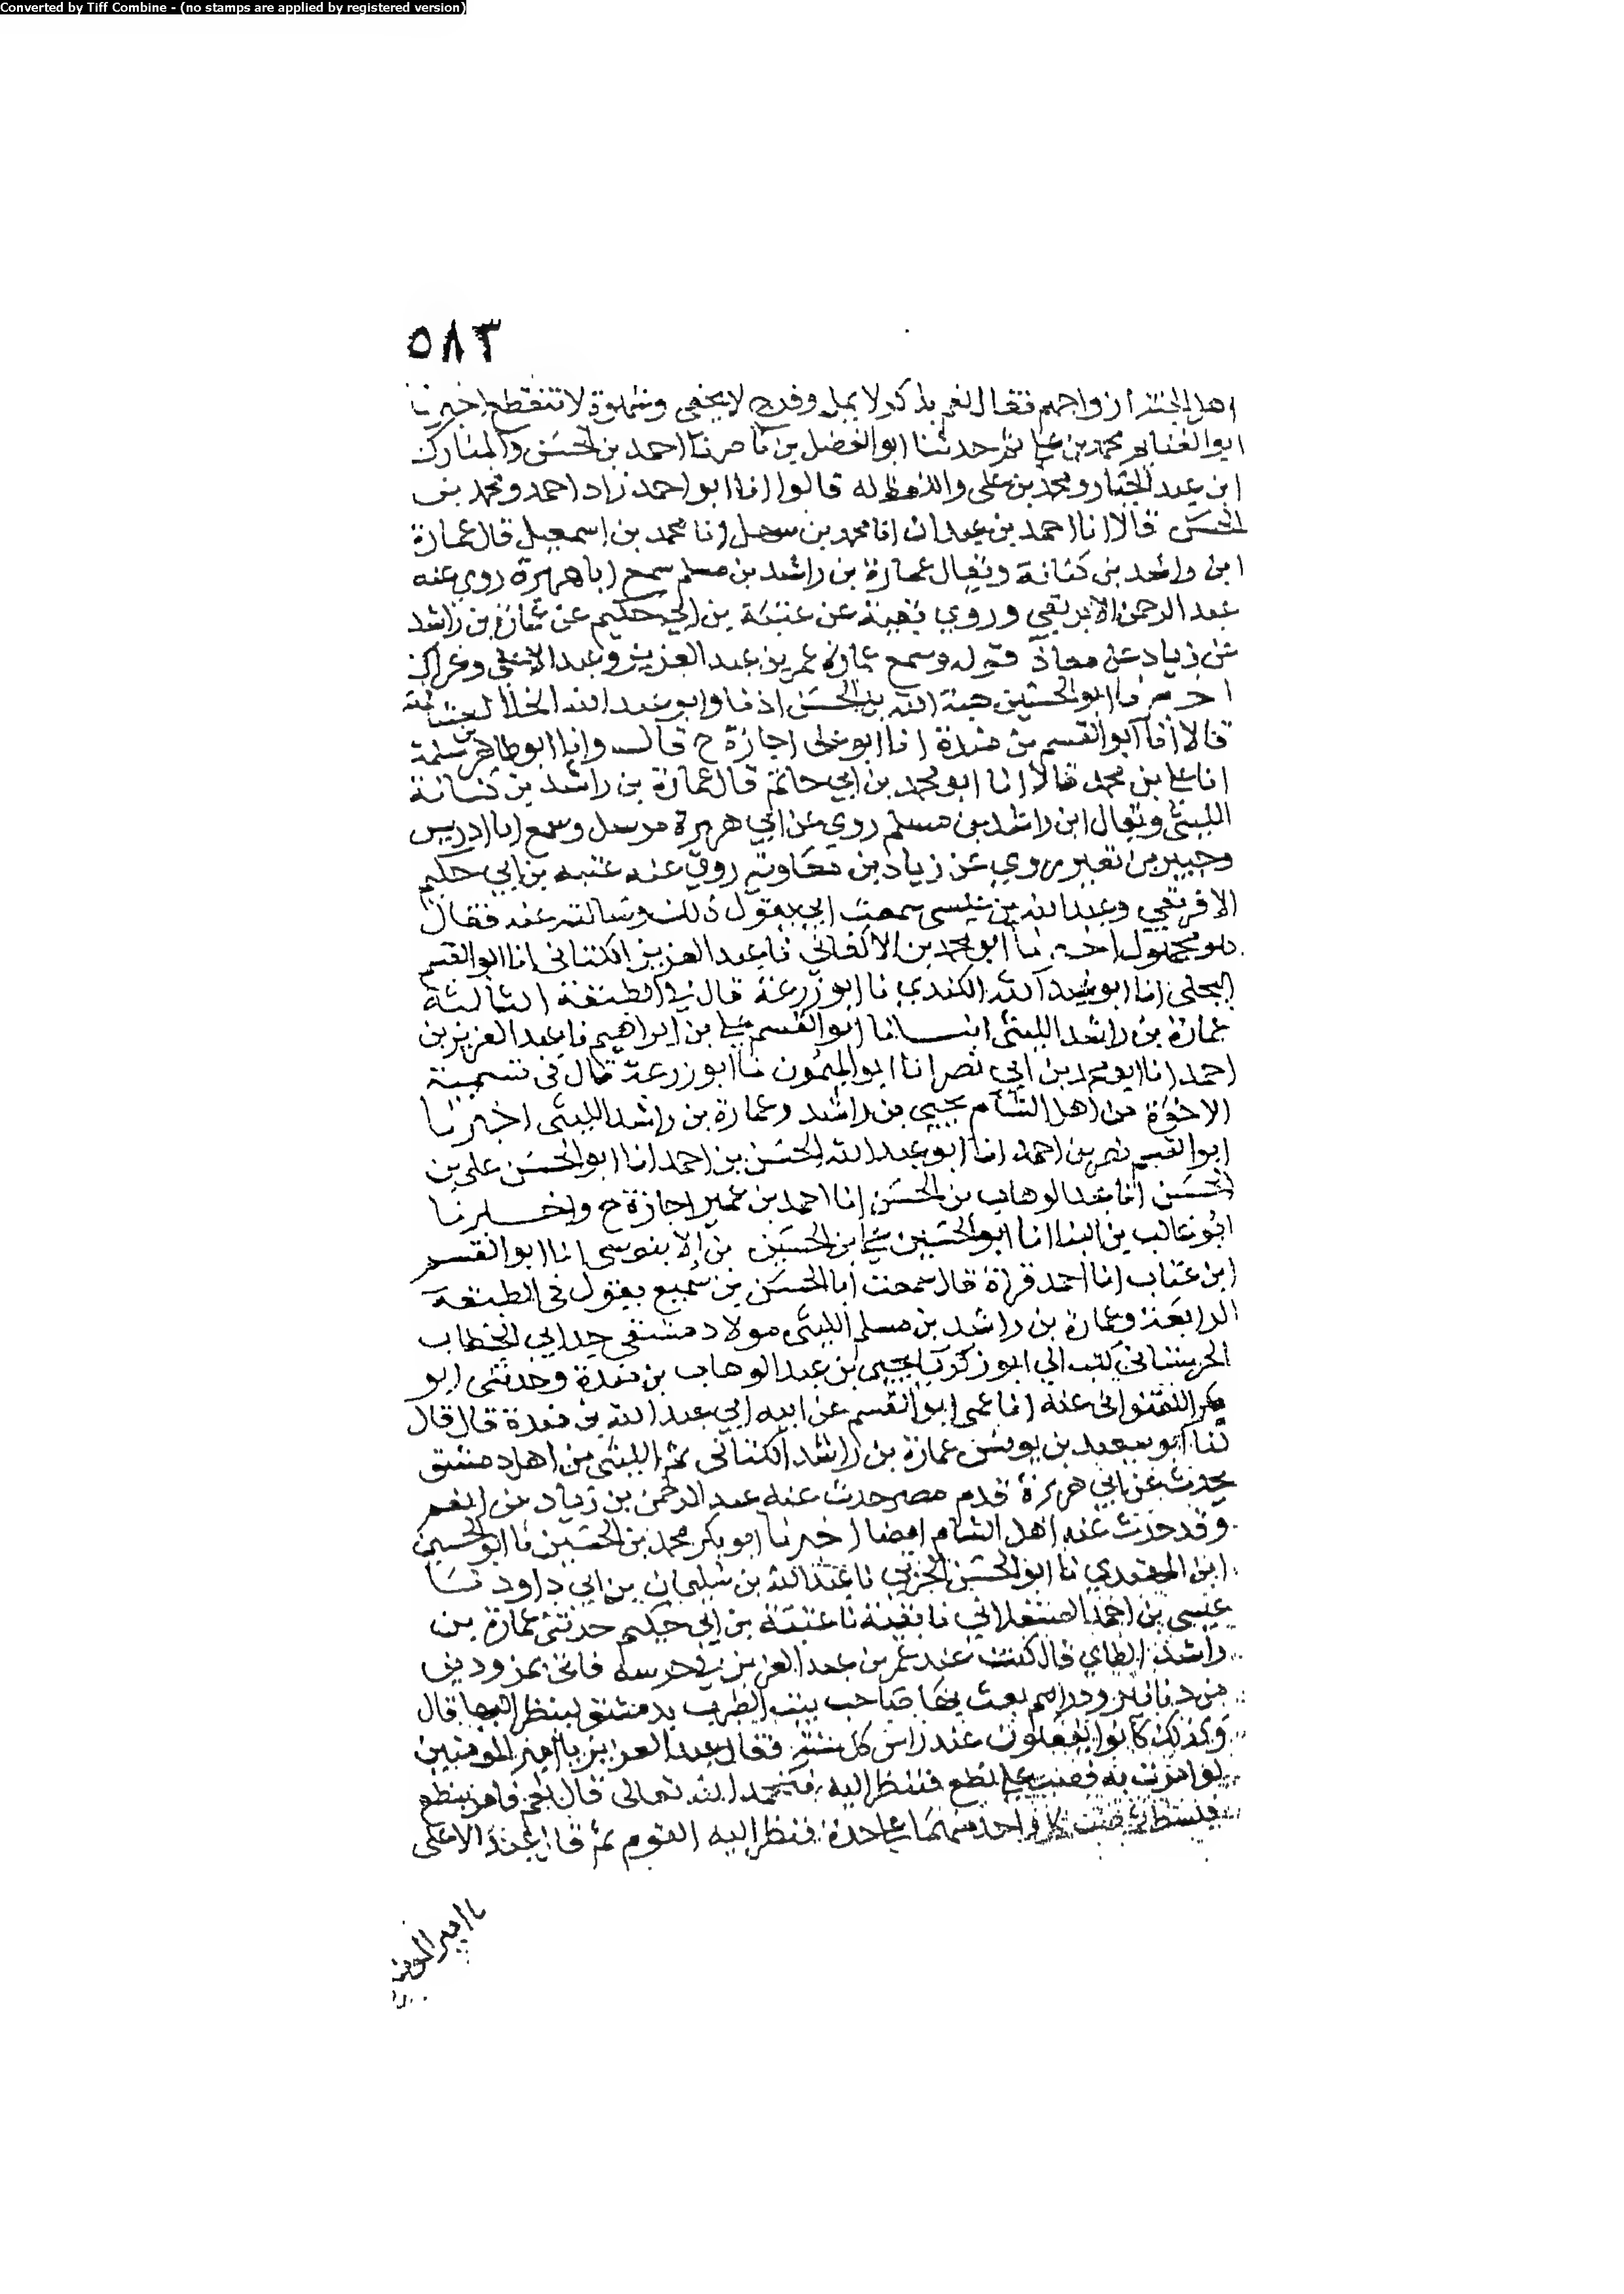 Converted by Tiff Combine - (no stamps are applied by registered version)
٥٨٣
اهل الجنة ازواجهم فقال نعم بذكر لا يمل وفرج لا يحفى وشهوة لا تنقطع اخبرنا
ابو الغنائم محمد بن علي ثم حدثنا ابو الفضل بن ناصر نا احمد بن الحسن والمبارك
ابن عبد الجبار ومحمد بن علي واللفظ له قالوا انا ابو احمد زاد احمد ومحمد بن
الحسن قالا انا احمد بن عبدان انا محمد بن سهل انا محمد بن اسمعيل قال عمارة
ابن راشد بن كنانة ويقال عمارة بن راشد بن مسلم سمع ابا هريرة روى عنه
عبد الرحمن الافريقي وروى بقية عن عتبة بن ابي حكيم عن عمارة بن راشد
عن زياد عن معاذ قوله وسمع عمارة عمر بن عبد العزيز وعبد الاعلى وعراك
اخبرنا ابو الحسين هبة الله بن الحسن اذنا وابو عبد الله الخلال
قالا انا ابو القسم بن مندة انا ابو علي اجازة ح قال وانا ابو طاهر بن سلمة
انا علي بن محمد قالا انا ابو محمد بن ابي حاتم قال عمارة بن راشد بن كنانة
الليثي ويقال ابن راشد بن مسلم روى عن ابي هريرة مرسل وسمع ابا ادريس
وجبير بن نفير روى عن زياد بن معاوية روى عنه عتبة بن ابي حكيم
الافريقي وعبد الله بن عيسى سمعت ابي يقول ذلك وسالته عنه فقال
هو مجهول اخبرنا ابو محمد بن الاكفاني نا عبد العزيز الكتاني انا ابو القسم
البجلي انا ابو عبد الله الكندي نا ابو زرعة قال في الطبقة الثالثة
عمارة بن راشد الليثي انبانا ابو القسم علي بن ابراهيم نا عبد العزيز بن
احمد انا ابو محمد بن ابي نصر انا ابو الميمون نا ابو زرعة قال في تسمية
الاخوة من اهل الشام يحيى بن راشد وعمارة بن راشد الليثي اخبرنا
ابو القسم نصر بن احمد انا ابو عبد الله الحسن بن احمد انا ابو الحسن علي بن
الحسن انا عبد الوهاب بن الحسن انا احمد بن عمير اجازة ح واخبرنا
ابو غالب بن البنا انا ابو الحسين علي بن الحسين بن الابنوسي انا ابو القسم
ابن عتاب انا احمد قراة قال سمعت ابا الحسن بن سميع يقول في الطبقة
الرابعة وعمارة بن راشد بن مسلم الليثي مولا دمشقي جد ابي الخطاب
الحرستاني كتب الي ابو زكريا يحيى بن عبد الوهاب بن مندة وحدثني ابو
بكر اللفتواني عنه انا عمي ابو القسم عن ابيه ابي عبد الله بن مندة قال قال
لنا ابو سعيد بن يونس عمارة بن راشد الكناني ثم الليثي من اهل دمشق
يحدث عن ابي هريرة قدم مصر حدث عنه عبد الرحمن بن زياد بن انعم
وقد حدث عنه اهل الشام ايضا اخبرنا ابو بكر محمد بن الحسين نا ابو الحسين
ابن المهتدي نا ابو الحسن الحربي نا عبد الله بن سليمان بن ابي داود نا
عيسى بن احمد العسقلاني نا بقية نا عتبة بن ابي حكيم حدثني عمارة بن
راشد الطاي قال كنت عند عمر بن عبد العزيز في حرسه فاتى بمزودين
من دنانير ودراهم بعث بها صاحب بيت الضرب بدمشق لينظر اليها قال
وكذلك كانوا يفعلون عند راس كل سنة فقال عبد العزيز يا امير المومنين
لو امرت به فصب على نطع فننظر اليه فنحمد الله تعالى قال نعم فامر بنطع
فبسط ثم صب كل واحد منهما على حدة فنظر اليه القوم ثم قال عبد الاعلى
يا امير المومنين